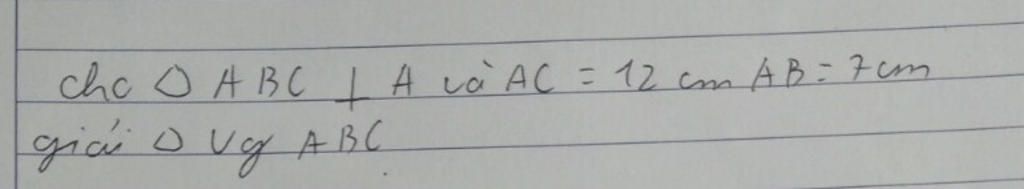 cho △ ABC ⊥ A và AC = 12 cm AB = 7 cm
giải △ Vg ABC